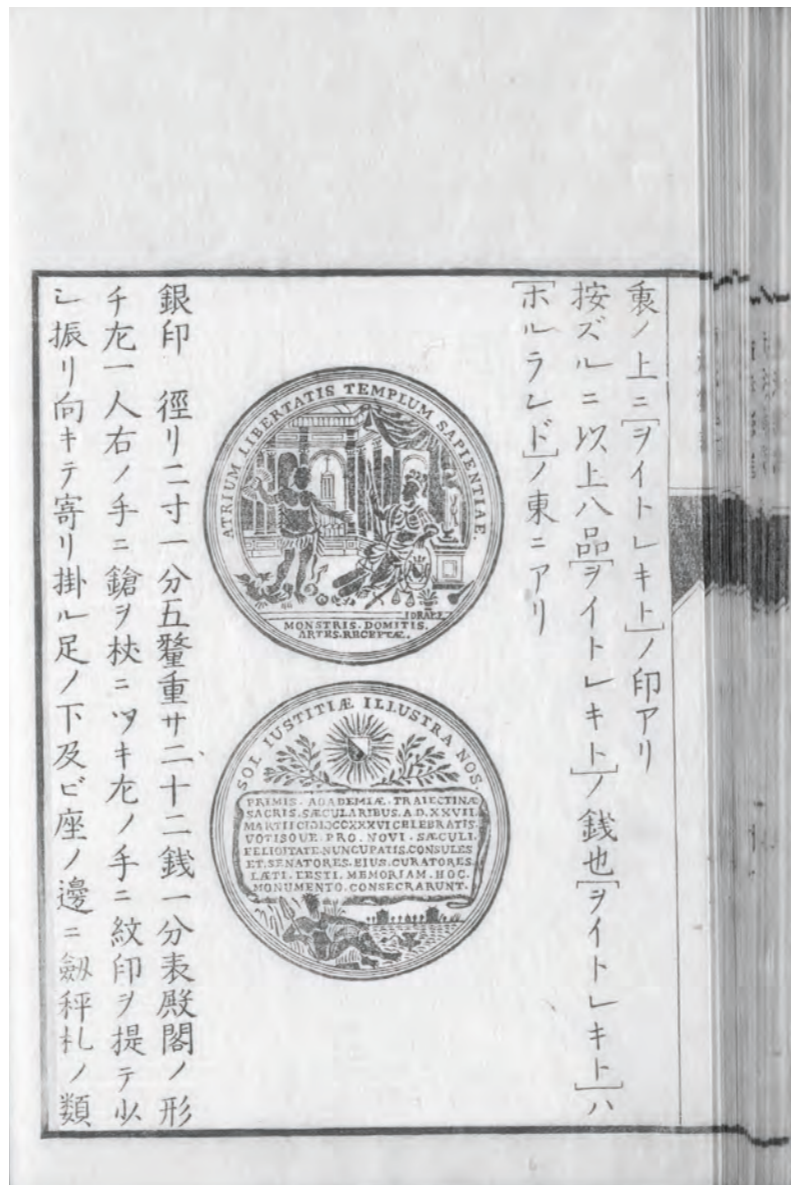 裏ノ上ニ[ヲイトレキト]ノ印アリ
按ズルニ以上八品[ヲイトレキト]ノ銭也[ヲイトレキト]ハ
[ホルランド]ノ東ニアリ
ATRIUM LIBERTATIS TEMPLUM SAPIENTIAE.
I DRAPP
MONSTRIS. DOMITIS.
ARTES. RECEPTÆ.
SOL IUSTITIÆ ILLUSTRA NOS.
PRIMIS. ACADEMIÆ. TRAIECTINÆ
SACRIS. SÆCULARIBUS. A.D. XXVII.
MARTII CIↃIↃCCXXXVI CELEBRATIS.
VOTISQUE. PRO. NOVI. SÆCULI.
FELICITATE. NUNCUPATIS. CONSULES
ET. SENATORES. EIUS. CURATORES.
LÆTI. TESTI. MEMORIAM. HOC.
MONUMENTO. CONSECRARUNT.
銀印　徑リ二寸一分五釐重サ二十二銭一分表殿閣ノ形
チ左一人右ノ手ニ鎗ヲ杖ニツキ左ノ手ニ紋印ヲ提テ少
シ振リ向キテ寄リ掛ル足ノ下及ビ座ノ邊ニ劔秤札ノ類